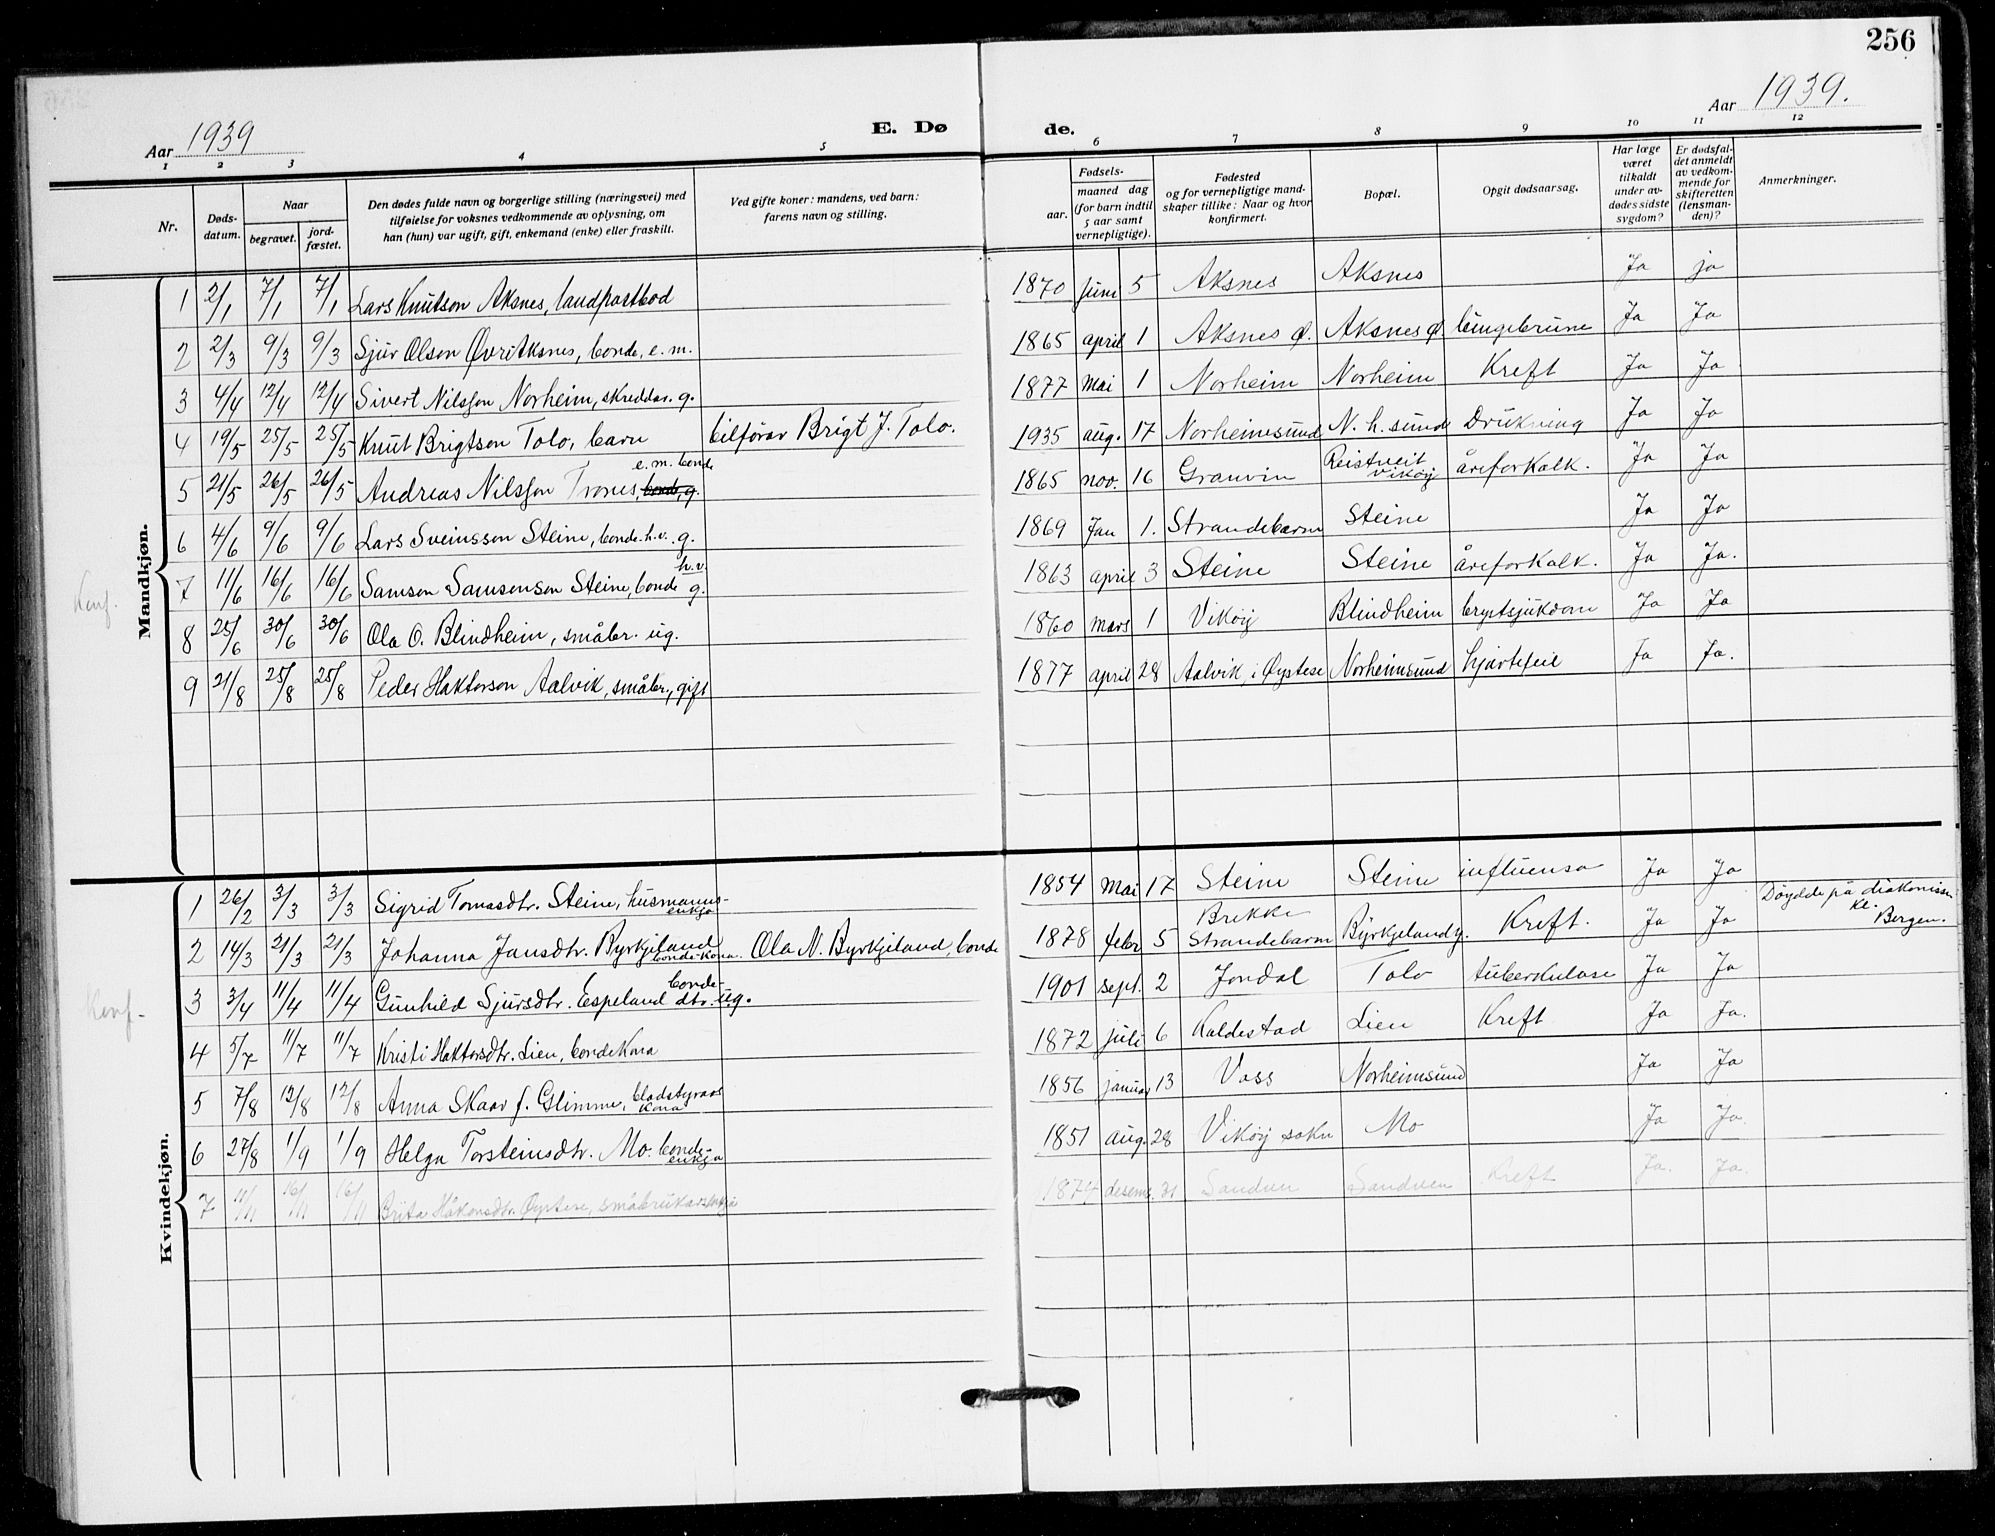 256
Aar 1939
E. Dø
de.
Aar 1939.
1 2 3 4 5 6 7 8 9 10 11 12
Nr.
Døds-
datum.
Naar
begravet.
jord-
fæstet.
Den dødes fulde navn og borgerlige stilling (næringsvei) med
tilføielse for voksnes vedkommende av oplysning, om
han (hun) var ugift, gift, enkemand (enke) eller fraskilt.
Ved gifte koner: mandens, ved barn:
farens navn og stilling.
Fødsels-
aar.
maaned dag
(for barn indtil
5 aar samt
vernepligtige).
Fødested
og for vernepligtige mand-
skaper tillike: Naar og hvor
konfirmert.
Bopæl.
Opgit dødsaarsag.
Har læge
været
tilkaldt
under av-
dødes sidste
sygdom?
Er dødsfal-
det anmeldt
av vedkom-
mende for
skifteretten
(lensman-
den)?
Anmerkninger.
Mandkjøn.
1 2/1 7/1 7/1 Lars Knutson Aksnes, landpostbod 1870 juni 5 Aksnes Aksnes Ja ja
2 2/3 9/3 9/3 Sjur Olson Øvri Aksnes, bonde, e.m. 1865 april 1 Aksnes ø. Aksnes ø. lungebrune Ja Ja
3 4/4 12/4 12/4 Sivert Nilsson Norheim, skreddar. g. 1877 mai 1 Norheim Norheim Kreft Ja Ja
4 19/5 25/5 25/5 Knut Brigtson Tolo, barn bilførar Brigt J. Tolo. 1935 aug. 17 Norheimsund N.h.sund Drukning Ja Ja
5 21/5 26/5 26/5 Andreas Nilsson Trones, bonde, g. e.m. bonde 1865 nov. 16 Granvin Reistveit Vikøy åreforkalk. Ja Ja
6 4/6 9/6 9/6 Lars Sveinsson Steine, bonde-h.v. g. 1869 Jan 1. Strandebarm Steine Ja Ja
7 11/6 16/6 16/6 Samson Samsonson Steine, bonde h.v. g. 1863 april 3 Steine Steine åreforkalk. Ja Ja.
Konf.
8 25/6 30/6 30/6 Ola O. Blindheim, småbr. ug. 1860 mars 1 Vikøy Blindheim brystsjukdom Ja Ja
9 21/8 25/8 25/8 Peder Haktorson Aalvik, småbr., gift 1877 april 28 Aalvik, i Øystese Norheimsund hjartefeil Ja Ja.
Kvindekjøn.
1 26/2 3/3 3/3 Sigrid Tomasdtr. Steine, husmanns-enkja 1854 mai 17 Steine Steine influensa Ja Ja
2 14/3 21/3 21/3 Johanna Jansdtr. Byrkjeland bonde-kona. Ola N. Byrkjeland, bonde 1878 febr 5 Brekke Strandebarm Byrkjeland y. Kreft. Ja Ja Døydde på diakonisse kl. Bergen.
3 3/4 11/4 11/4 Gunhild Sjursdtr. Espeland bonde-dtr. ug. 1901 sept. 2 Jondal Tolo tuberkulose Ja Ja
Konf.
4 5/7 11/7 11/7 Kristi Haktorsdtr. Lien, bondekona 1872 juli 6 Kaldestad Lien Kreft Ja Ja.
5 7/8 12/8 12/8 Anna Skaar f. Glimme, bladstyrars kona 1856 januar 13 Voss Norheimsund Ja Ja
6 27/8 1/9 1/9 Helga Torsteinsdtr. Mo. bonde-enkja 1851 aug. 28 Vikøy sokn Mo Ja Ja.
7 11/11 16/11 16/11 Brita Håkonsdtr. Øystese, småbrukarsenkja 1874 desem. 31 Sandven Sandven Kreft Ja. Ja.